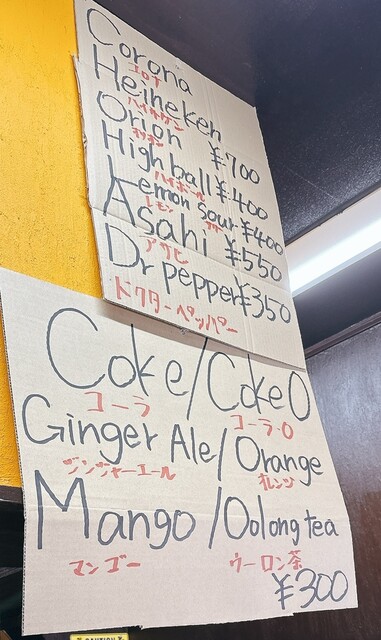 Corona
コロナ
Heineken
ハイネケン
Orion ¥700
オリオン
High ball ¥400
ハイボール
Lemon Sour ¥400
レモン サワー
Asahi ¥550
アサヒ
Dr pepper ¥350
ドクターペッパー
Coke/Coke 0
コーラ コーラ・0
Ginger Ale/Orange
ジンジャーエール オレンジ
Mango/Oolong tea
マンゴー ウーロン茶
¥300
CAUTION